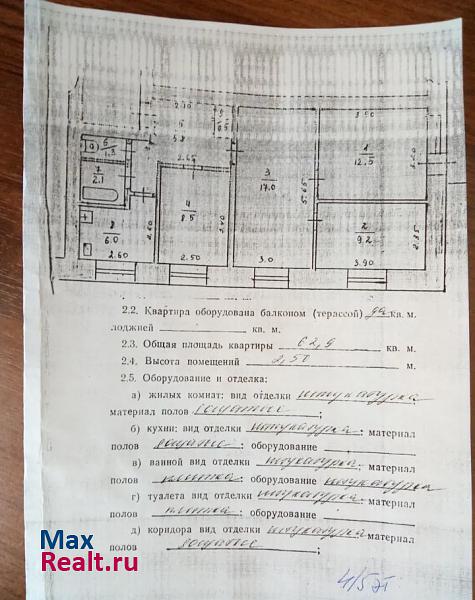 2.70
5
5.8
2.65
6
1.3
7
2.1
3
17.0
5.65
3.90
1
12.5
3.20
4
8.5
3.40
2
9.2
2.35
8
6.0
2.60
2.50
3.0
3.90
2.2. Квартира оборудована балконом (терассой) да кв. м.
лоджией кв. м.
2.3. Общая площадь квартиры 62,9 кв. м.
2.4. Высота помещений 2,50 м.
2.5. Оборудование и отделка:
а) жилых комнат: вид отделки штукатурка;
материал полов дощатые;
б) кухни: вид отделки штукатурка; материал
полов дощатые; оборудование
в) ванной вид отделки штукатурка; материал
полов плитка; оборудование штукатурка
г) туалета вид отделки штукатурка; материал
полов плитка; оборудование
д) коридора вид отделки штукатурка материал
полов дощатые;
4/5эт
Max
Realt.ru